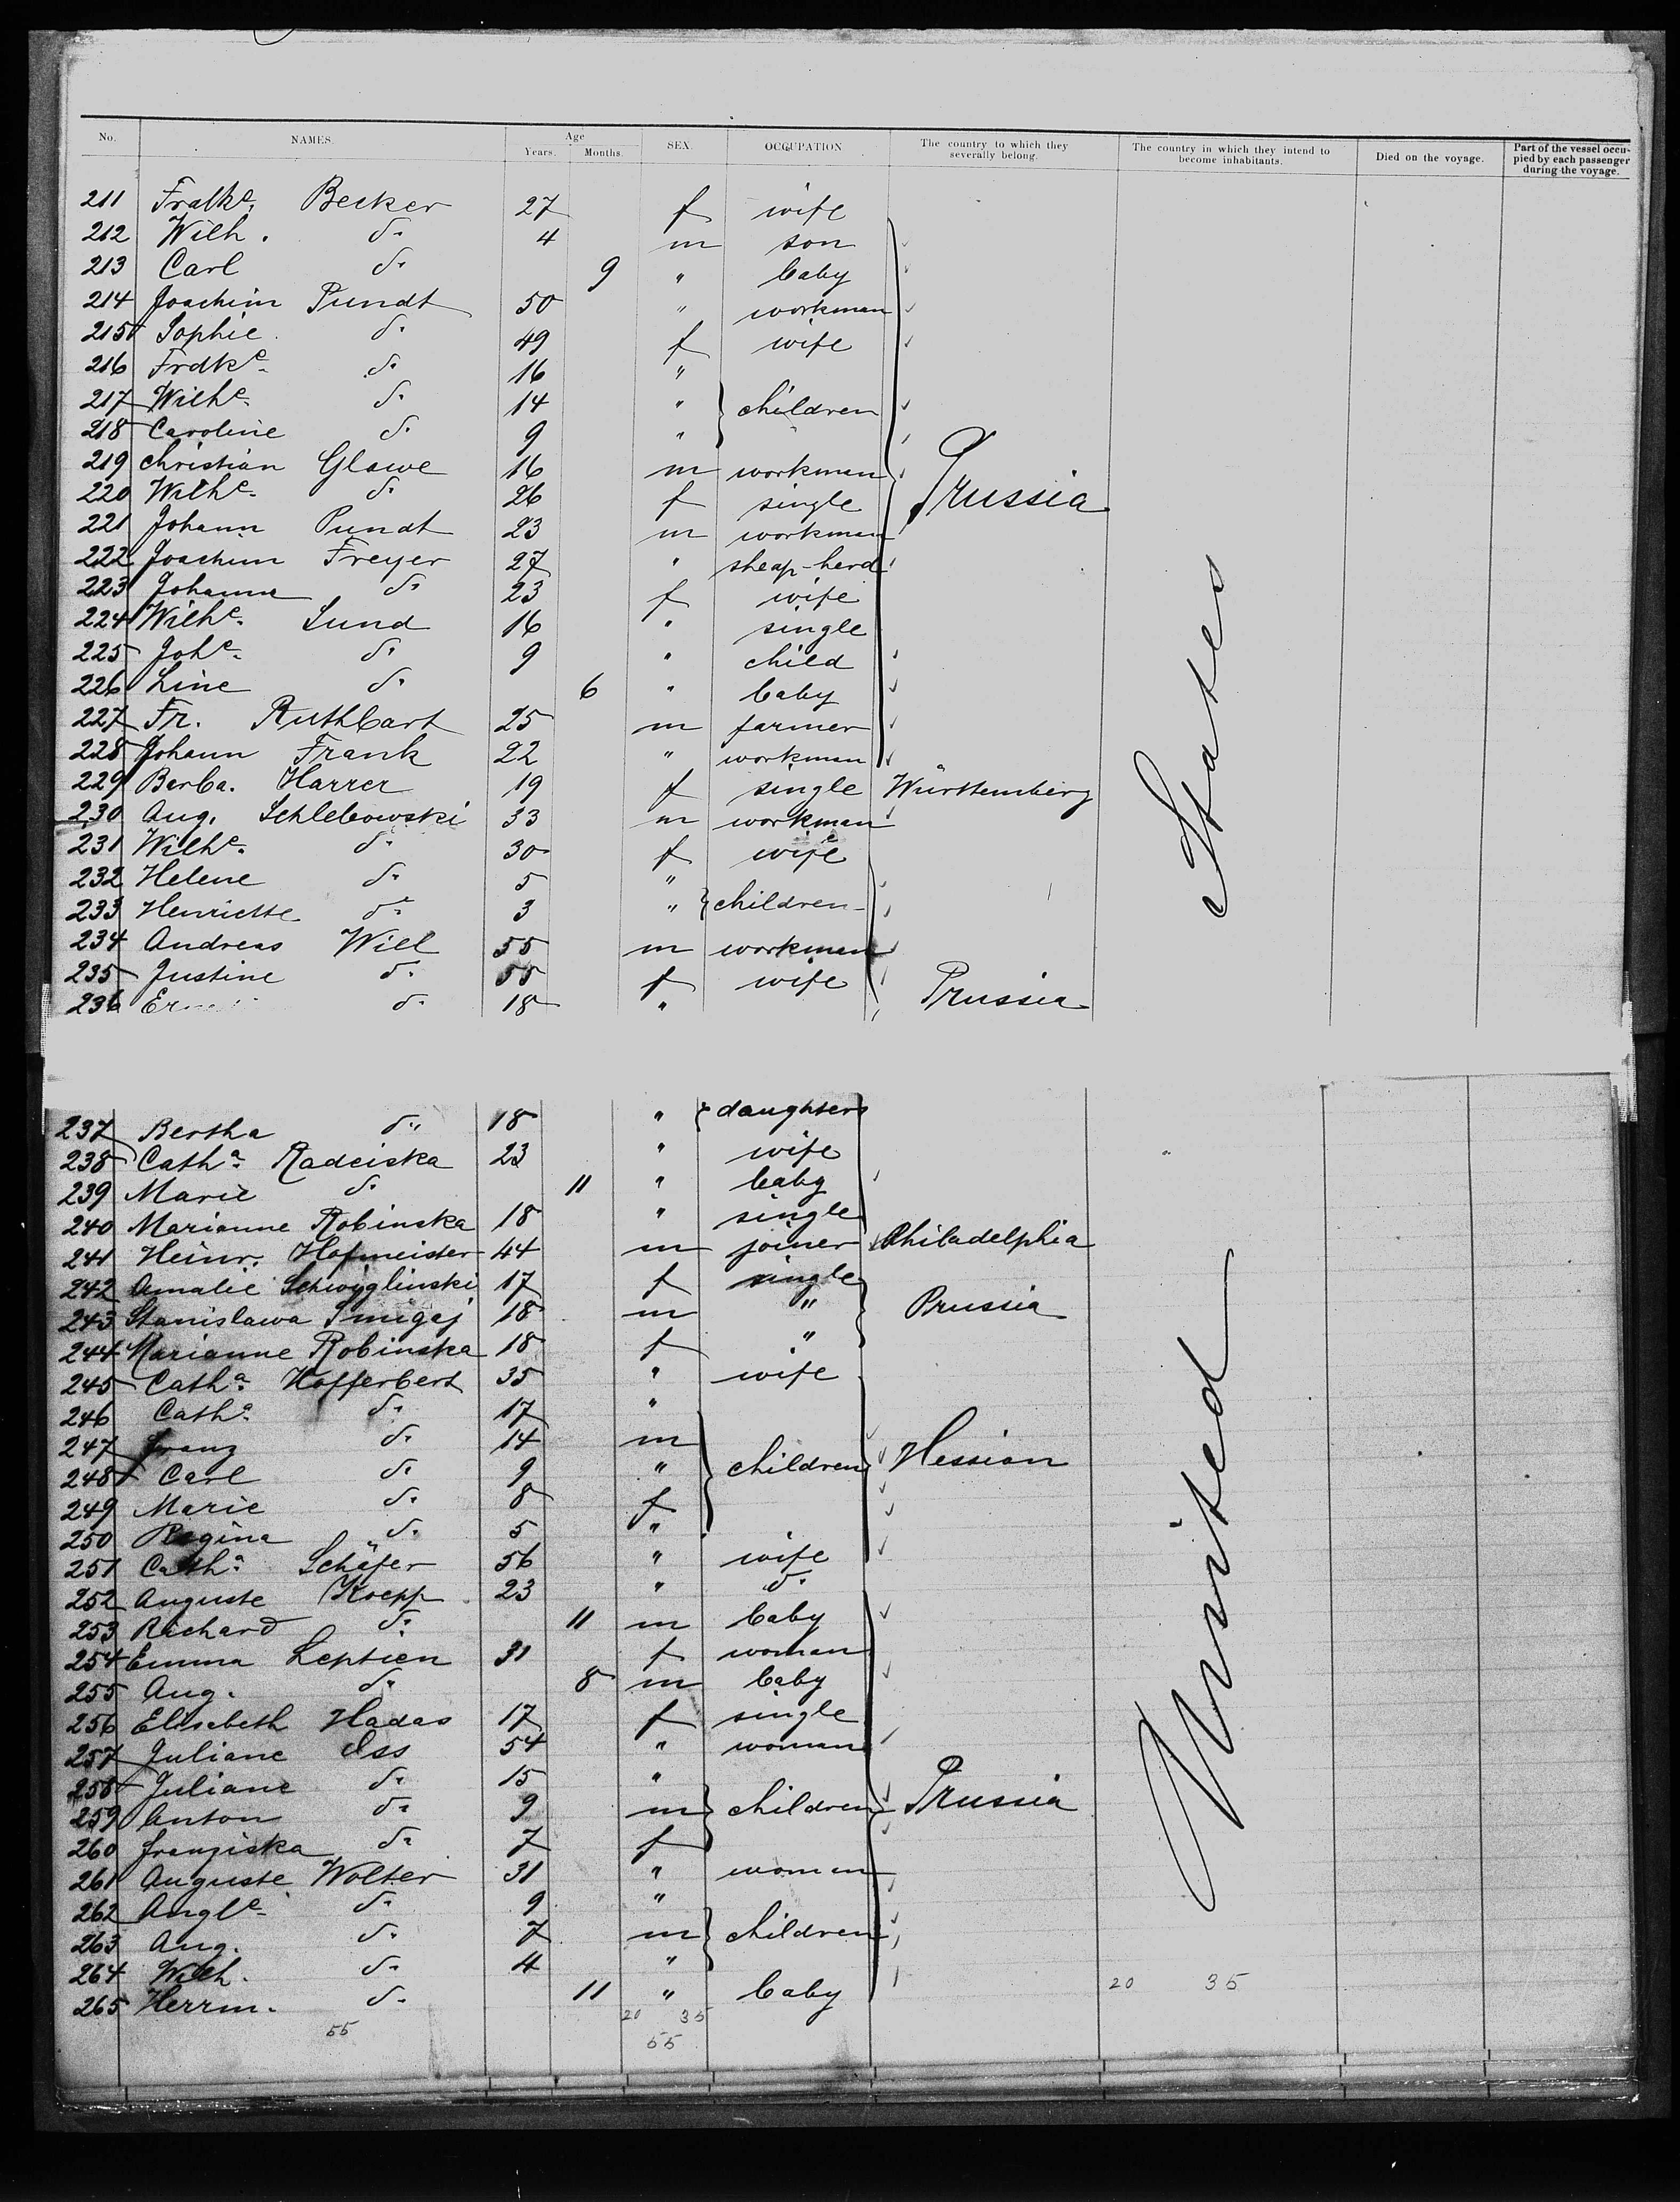 No. NAMES. Age Years. Months. SEX. OCCUPATION The country to which they severally belong. The country in which they intend to become inhabitants. Died on the voyage. Part of the vessel occupied by each passenger during the voyage.
211 Fralke. Becker 27 f wife
212 Wilh. do 4 m son
213 Carl do 9 " baby
214 Joachim Pundt 50 " workman
215 Sophie do 49 f wife
216 Frdke. do 16 "
217 Wilhe. do 14 " children
218 Caroline do 9 "
219 Christian Glawe 16 m workman
220 Wilhe. do 26 f single Prussia
221 Johann Pundt 23 m workman
222 Joachim Freyer 27 " sheap-herd
223 Johanna do 23 f wife
224 Wilhe. Lund 16 " single
225 Johe. do 9 " child
226 Line do 6 " baby
227 Fr. Ruthbart 25 m farmer
228 Johann Frank 22 " workman
229 Barba. Harrer 19 f single Württemberg
230 Aug. Schlebowski 33 m workman
231 Wilhe. do 30 f wife
232 Helene do 5 "
233 Henriette do 3 " children
234 Andreas Will 55 m workman
235 Justine do 55 f wife
236 do 18 " Prussia
237 Bertha do 18 " daughters
238 Catha. Radciska 23 " wife
239 Marie do 11 " baby
240 Marianne Robinska 18 " single
241 Heinr. Hofmeister 44 m joiner Philadelphia
242 Amalie Schwiglinski 17 f single
243 Stanislawa Smigaj 18 m " Prussia
244 Marianne Robinska 18 f "
245 Catha. Hofferbert 35 " wife
246 Catha. do 17 "
247 Franz do 14 m
248 Carl do 9 " children Hessian
249 Marie do 8 f
250 Regina do 5 "
251 Catha. Schäfer 56 " wife
252 Auguste Koepp 23 " do
253 Richard do 11 m baby
254 Emma Leptien 31 f woman
255 Aug. do 8 m baby
256 Elisabeth Hadas 17 f single
257 Juliane Iss 54 " woman
258 Juliane do 15 "
259 Anton do 9 m children Prussia
260 Franziska do 7 f
261 Auguste Wolter 31 " woman
262 Augte. do 9 "
263 Aug. do 7 m children
264 Wilh. do 4 "
265 Herrm. do 11 " baby
United States
20 35
20 35
55
55